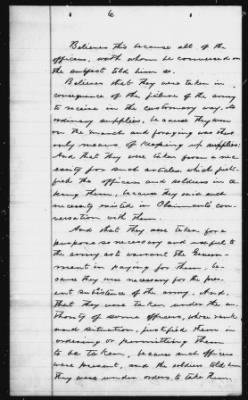 6
Believes this because all of the
officers, with whom he conversed on
the subject told him so.
Believes that they were taken in
consequence of the failure of the army
to receive in the customary way, its
ordinary supplies, because they were
on the march and foraging was their
only means, of keeping up supplies;
And that they were taken from a ne-
cessity for such articles which justi-
fied the officers and soldiers in
taking them, because they said such
necessity existed in Claimants con-
versation with them.
And that they were taken for a
purpose so necessary and useful to
the army as to warrant the Govern-
ment in paying for them, be-
cause they were necessary for the pres-
ent subsistence of the army. And,
that they were taken under the au-
thority of some officers, whose rank
and situation, justified them in
ordering or permitting them
to be taken, because such officers
were present, and the soldiers told him
they were under orders, to take them.